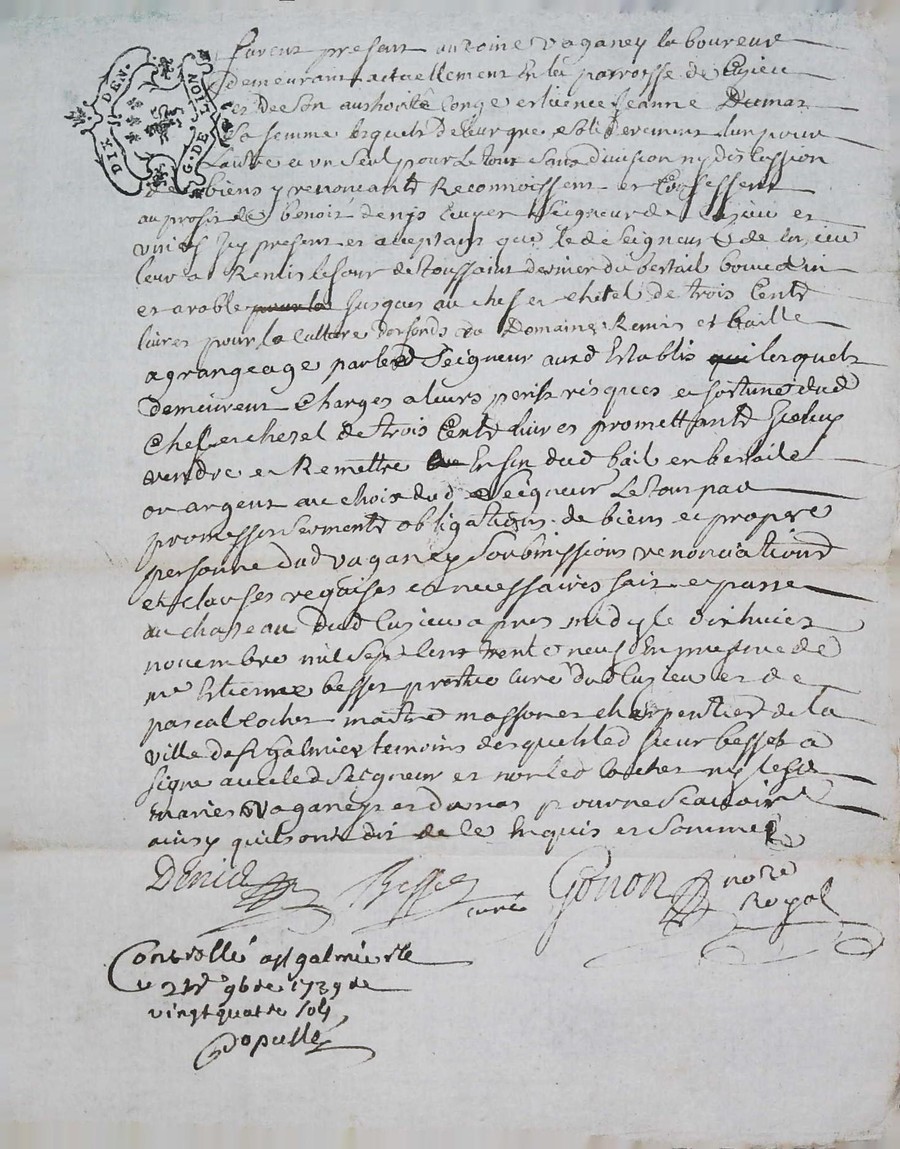 DIX DEN. G. DE LION
furent present antoine vaganey laboureur
demeurant actuellement En la parroisse de Cuzieu
et de son authorité conge et licence Jeanne Dumas
Sa femme lesquels de leur gre solidairement lun pour
Lautre et un seul pour le tout sans division ny discussion
de biens y renoncant Reconnoissent et Confessent
au profit de benoit denis Cuyer Seigneur de Cuzieu et
icy present et aceptant que led Seigneur de Cuzieu
leur a Remis le jour de toussaint dernier du bestail
et arable jusques au chef et chetel de trois Cent
livres pour la Culture des fonds du Domaine Remis et baillé
a grangeage par led Seigneur aud Establis lesquels
demeurent Charges a leurs perils risques et fortune dud
Chef et chetel de trois Cent livres promettant Iceluy
rendre et Remettre En fin dud bail en bestails
ou argent au choix dud Seigneur Le tout par
promesses serment obligations de biens et propre
personne dud vaganey Soubmissions renonciations
et clauses requises et necessaires fait et passé
au chateau dud Cuzieu apres midy le dixhuict
novembre mil Sept Cent trente neuf En presence de
me Estienne besset pretre curé dud Cuzieu et de
pascal cocher maitre masson et charpentier de la
ville de st galmier temoins desquels led sieur besset a
signe avec led Seigneur et non led Cocher ny lesd
maries vaganey et dumas pour ne scavoir
ainsy quils ont dit de ce Enquis et Sommés
Denis Besset curé Gonon nore
Royal
Controllé a st galmier le
21 9bre 1739 Re
vingt quatre sols